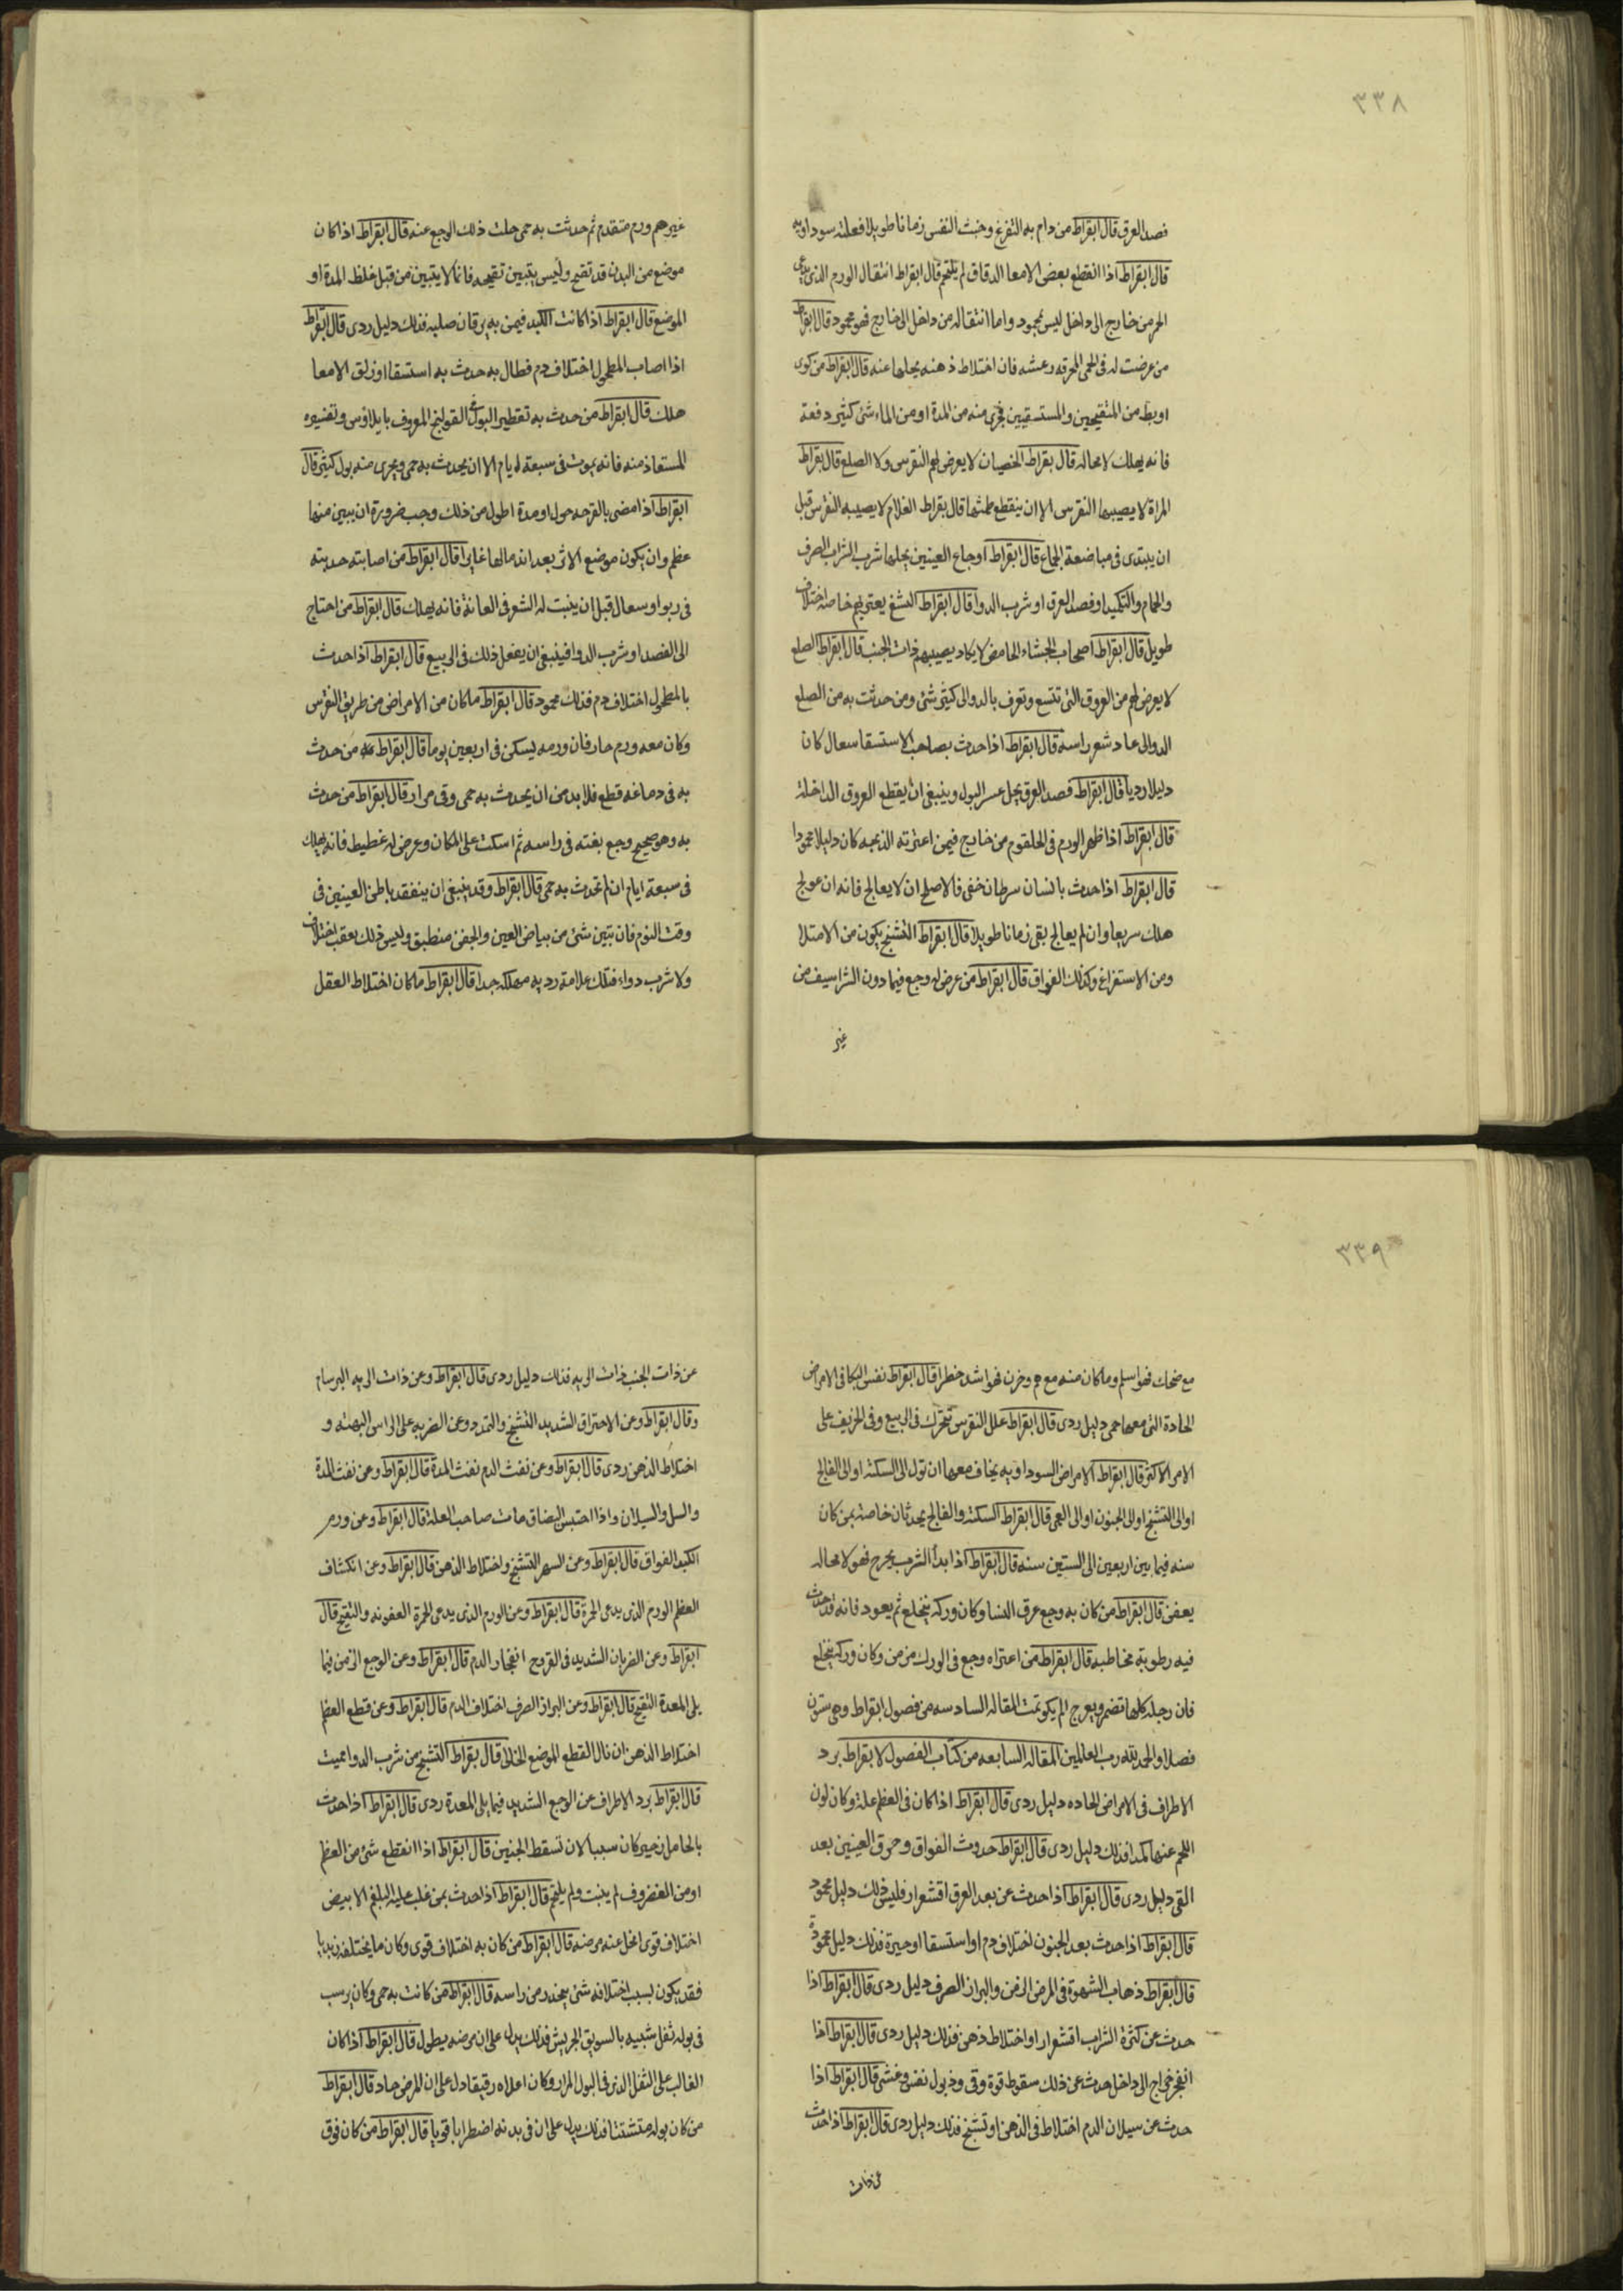 ٣٣٨
فصد العرق قال ابقراط من دام به التفزع وخبث النفس زمانا طويلا فعلته سوداويه
قال ابقراط اذا انقطع بعض الامعا الدقاق لم يلتحم قال ابقراط انتقال الورم الذى يدعى
الحمرمن خارج الى داخل ليس بمحمود واما انتقاله من داخل الى خارج فهو محمود قال ابقراط
من عرضت له فى الحمى المحرقه رعشه فان اختلاط ذهنه يحلها عنه قال ابقراط من كوى
او بط من المتقيحين والمستسقيين فجرى منه من المدة او من الماء شى كثير دفعة
فانه يهلك لا محاله قال بقراط الخصيان لا يعرض لهم النقرس ولا الصلع قال بقراط
المراة لا يصيبها النقرس الا ان ينقطع طمثها قال بقراط الغلام لا يصيبه النقرس قبل
ان يبتدى فى مباضعة الجماع قال ابقراط اوجاع العينين يحلها شرب الشراب الصرف
والحمام والتكميد او فصد العرق او شرب الدوا قال ابقراط اللثغ يعتريهم خاصه اختلاف
طويل قال ابقراط اصحاب الجشاء الحامض لا يكاد يصيبهم ذات الجنب قال ابقراط الصلع
لا يعرض لهم من العروق التى تتسع وتعرف بالدوالى كثير شئ ومن حدثت به من الصلع
الدوالى عاد شعر راسه قال ابقراط اذا حدث بصاحب الاستسقا سعال كان
دليلا رديا قال ابقراط فصد العرق يحل عسر البول وينبغى ان يقطع العروق الداخلة
قال ابقراط اذا ظهر الورم فى الحلقوم من خارج فيمن اعترته الذبحه كان دليلا محمودا
قال ابقراط اذا حدث بانسان سرطان خفى فالاصلح ان لا يعالج فانه ان عولج
هلك سريعا وان لم يعالج بقى زمانا طويلا قال ابقراط التشنج يكون من الامتلا
ومن الاستفراغ وكذلك الفواق قال ابقراط من عرض له وجع فيما دون الشراسيف من
غير
غيرهم ورم متقدم ثم حدثت به حمى حلت ذلك الوجع عنه قال ابقراط اذا كان
موضع من البدن قد تقيح وليس يتبين تقيحه فانما لا يتبين من قبل غلظ المدة او
الموضع قال ابقراط اذا كانت الكبد فيمن به يرقان صلبه فذلك دليل ردى قال ابقراط
اذا اصاب المطحول اختلاف دم فطال به حدث به استسقا او زلق الامعا
هلك قال ابقراط من حدث به تقطير البول القولنج المعروف بايلاوس وتفسيره
المستعاذ منه فانه يموت فى سبعة ايام الا ان يحدث به حمى ويجرى منه بول كثير قال
ابقراط اذا مضى بالقرحه حول او مدة اطول من ذلك وجب ضرورة ان يبين منها
عظم وان يكون موضع الاثر بعد اندمالها غايرا قال ابقراط من اصابته حدبته
فى ربو او سعال قبل ان ينبت له الشعر فى العانة فانه يهلك قال ابقراط من احتاج
الى الفصد او شرب الدوا فينبغى ان يفعل ذلك فى الربيع قال ابقراط اذا حدث
بالمطحول اختلاف دم فذلك محمود قال ابقراط ما كان من الامراض من طريق النقرس
وكان معه ورم حار فان ورمه يسكن فى اربعين يوما قال ابقراط من حدث
به فى دماغه قطع فلا بد من ان يحدث به حمى وقى مرار قال ابقراط من حدث
به وهو صحيح وجع بغته فى راسه ثم اسكت على المكان وعرض له غطيط فانه يهلك
فى سبعة ايام ان لم تحدث به حمى قال ابقراط وقد ينبغى ان يتفقد باطن العينين فى
وقت النوم فان تبين شئ من بياض العين والجفن منطبق وليس ذلك بعقب اختلاف
ولا شرب دواء فتلك علامة رديه مهلكه جدا قال ابقراط ما كان اختلاط العقل
٣٣٩
مع ضحك فهو اسلم وما كان منه مع هم وحزن فهو اشد خطرا قال ابقراط نفس البكا فى الامراض
الحادة التى معها حمى دليل ردى قال ابقراط علل النقرس تتحرك فى الربيع وفى الخريف على
الامر الاكثر قال ابقراط الامراض السوداويه يخاف معها ان تول الى السكتة او الى الفالج
او الى التشنج او الى الجنون او الى العمى قال ابقراط السكتة والفالج يحدثان خاصة بمن كان
سنه فيما بين اربعين الى الستين سنه قال ابقراط اذا بدأ الثرب يخرج فهو لا محاله
يعفن قال ابقراط من كان به وجع عرق النسا وكان وركه ينخلع ثم يعود فانه قد حدث
فيه رطوبة مخاطيه قال ابقراط من اعتراه وجع فى الورك مزمن وكان وركه ينخلع
فان رجله كلها تضمر ويعرج ان لم يكو تمت المقاله السادسه من فصول ابقراط وهى ستون
فصلا والحمد لله رب العالمين المقاله السابعه من كتاب الفصول لابقراط برد
الاطراف فى الامراض الحاده دليل ردى قال ابقراط اذا كان فى العظم علة وكان لون
اللحم عنها كمدا فذلك دليل ردى قال ابقراط حدوث الفواق وحمرة العينين بعد
القى دليل ردى قال ابقراط اذا حدث عن بعد العرق اقشعرار فليس ذلك دليل محمود
قال ابقراط اذا حدث بعد الجنون اختلاف دم او استسقا او حيرة فذلك دليل محمود
قال ابقراط ذهاب الشهوة فى المرض المزمن والبراز الصرف دليل ردى قال ابقراط اذا
حدث عن كثرة الشراب اقشعرار او اختلاط ذهن فذلك دليل ردى قال ابقراط اذا
انفجر خراج الى داخل حدث عن ذلك سقوط قوة وقى وذبول نفس وغشى قال ابقراط اذا
حدث عن سيلان الدم اختلاط فى الذهن او تشنج فذلك دليل ردى قال ابقراط اذا حدث
عن ذات
عن ذات الجنب ذات الريه فذلك دليل ردى قال ابقراط وعن ذات الريه البرسام
وقال ابقراط وعن الاحتراق الشديد التشنج والتمدد وعن الضربه على الراس البهته و
اختلاط الذهن ردى قال ابقراط وعن نفث الدم نفث المدة قال ابقراط وعن نفث المدة
والسل والسيلان واذا احتبس البصاق مات صاحب العلة قال ابقراط وعن ورم
الكبد الفواق قال ابقراط وعن السهر التشنج واختلاط الذهن قال ابقراط وعن انكشاف
العظم الورم الذى يدعى الحمرة قال ابقراط وعن الورم الذى يدعى الحمرة العفونه والتقيح قال
ابقراط وعن الضربان الشديد فى القروح انفجار الدم قال ابقراط وعن الوجع المزمن فيما
يلى المعدة التقيح قال ابقراط وعن البراز الصرف اختلاف الدم قال ابقراط وعن قطع العظم
اختلاط الذهن ان نال القطع الموضع الخالى قال بقراط التشنج من شرب الدوا مميت
قال ابقراط برد الاطراف عن الوجع الشديد فيما يلى المعدة ردى قال ابقراط اذا حدث
بالحامل زحير كان سببا لان تسقط الجنين قال ابقراط اذا انقطع شئ من العظم
او من الغضروف لم ينبت ولم يلتحم قال ابقراط اذا حدث بمن غلب عليه البلغم الابيض
اختلاف قوى انحل عنه مرضه قال ابقراط من كان به اختلاف قوى وكان ما يختلفه زبديا
فقد يكون لسبب اختلافه شئ ينحدر من راسه قال ابقراط من كانت به حمى وكان يرسب
فى بوله ثفل شبيه بالسويق الجريش فذلك يدل على ان مرضه يطول قال ابقراط اذا كان
الغالب على الثفل الذى فى البول المرار وكان اعلاه رقيقا دل على ان المرض حاد قال ابقراط
من كان بوله متشتتا فذلك يدل على ان فى بدنه اضطرابا قويا قال ابقراط من كان فوق